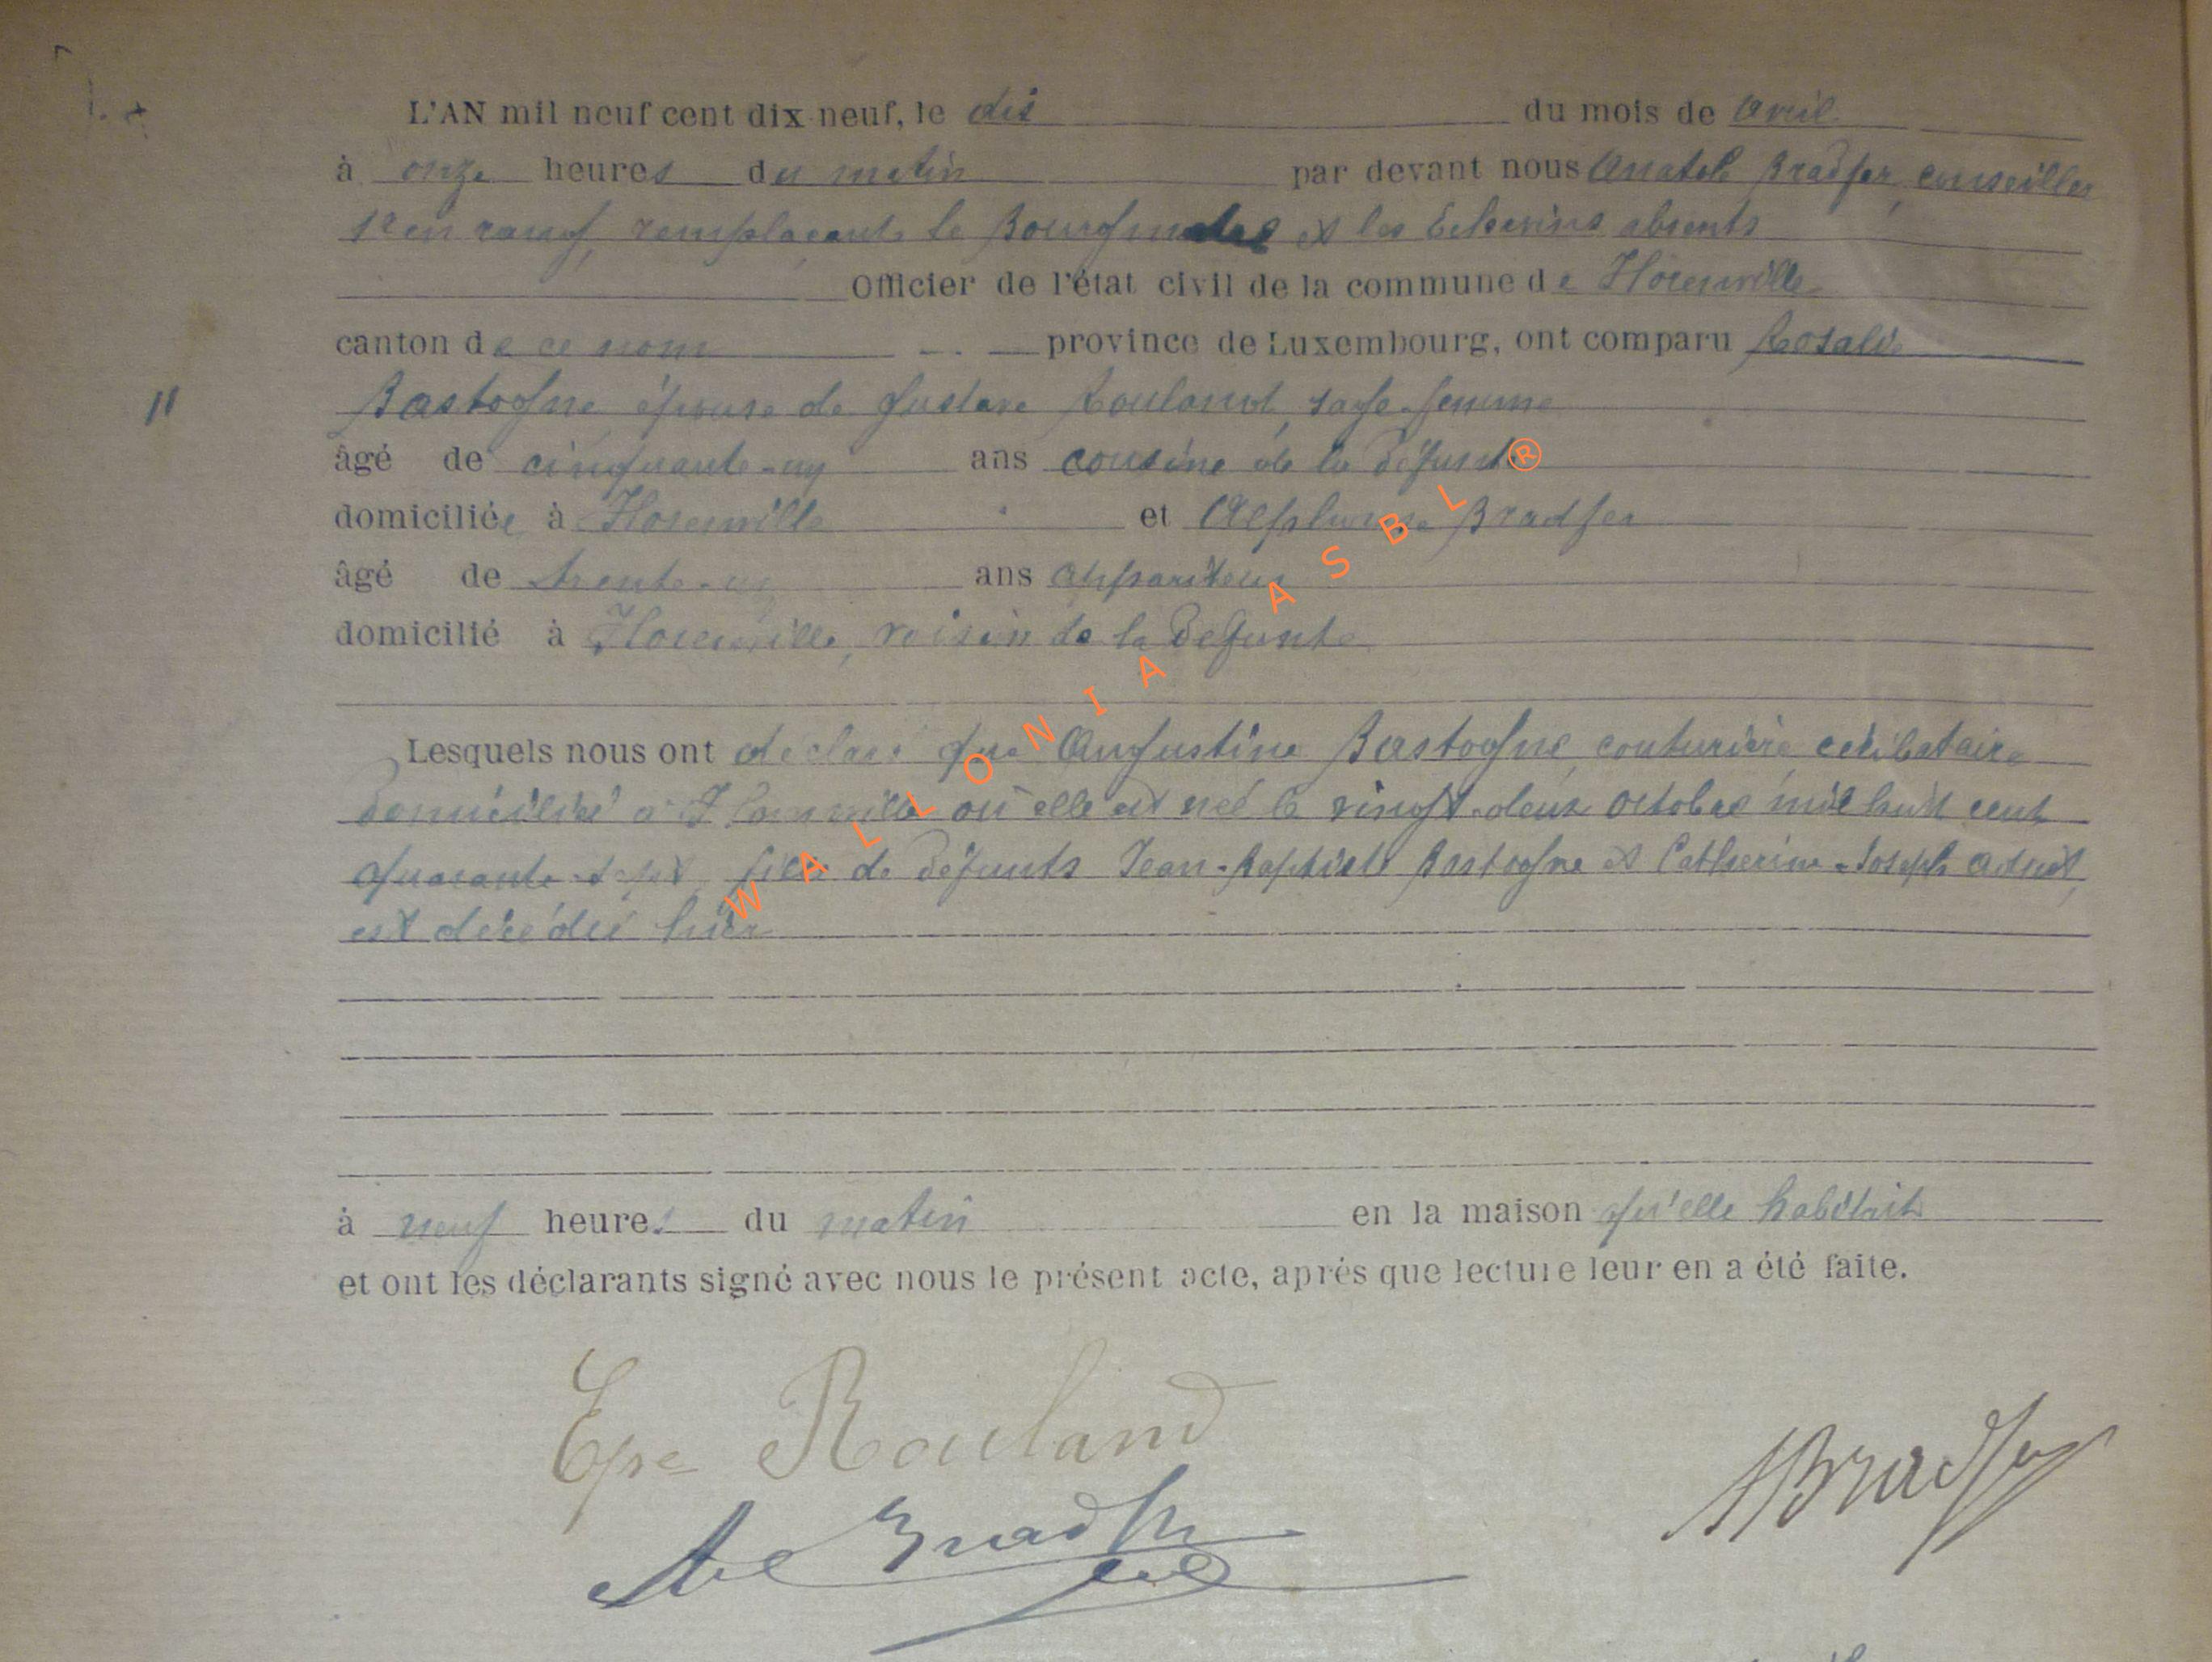 L'AN mil neuf cent dix neuf, le dix du mois de avril
à onze heures du matin par devant nous Anatole Bradfer, conseiller
1er en rang, remplaçant le Bourgmestre et les Echevins absents
Officier de l'état civil de la commune de Florenville
canton de ce nom province de Luxembourg, ont comparu Rosalie
Bastogne, épouse de Gustave Rouland, sage-femme
âgé de cinquante-un ans cousine de la défunte
domiciliée à Florenville et Alphonse Bradfer
âgé de trente-un ans appariteur
domicilié à Florenville, voisin de la défunte
Lesquels nous ont déclaré que Augustine Bastogne, couturière célibataire
domiciliée à Florenville où elle est née le vingt-deux octobre mil huit cent
quarante-sept, fille de défunts Jean-Baptiste Bastogne et Catherine-Joseph
est décédée hier
à neuf heures du matin en la maison qu'elle habitait
et ont les déclarants signé avec nous le présent acte, après que lecture leur en a été faite.
Epse Rouland
ABradfer
Al Bradfer
11
WALLONIA ASBL®